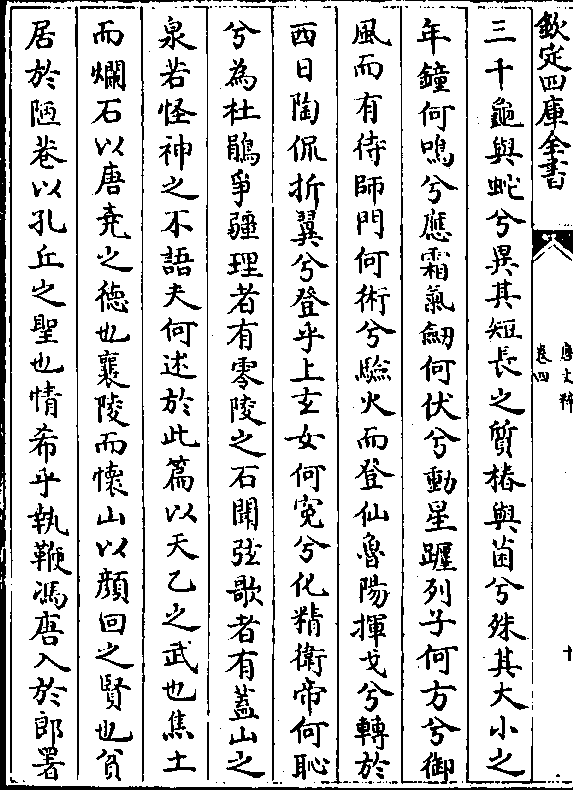 欽定四庫全書
唐文粹
卷四
十
三千龜與蛇兮異其短長之質椿與菌兮殊其大小之
年鐘何鳴兮應霜氣劒何伏兮動星躔列子何方兮御
風而有待師門何術兮驗火而登仙魯陽揮戈兮轉於
西日陶侃折翼兮登乎上玄女何寃兮化精衛帝何恥
兮為杜鵑爭疆理者有零陵之石聞弦歌者有蓋山之
泉若怪神之不語夫何述於此篇以天乙之武也焦土
而爛石以唐堯之德也襄陵而懷山以顔回之賢也貧
居於陋巷以孔丘之聖也情希乎執鞭馮唐入於郎署